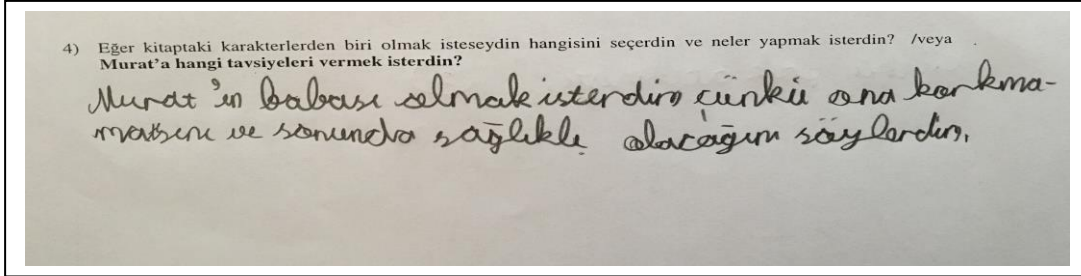 4) Eğer kitaptaki karakterlerden biri olmak isteseydin hangisini seçerdin ve neler yapmak isterdin? /veya
Murat'a hangi tavsiyeleri vermek isterdin?
Murat'ın babası olmak isterdim çünkü ona korkma-
masını ve sonunda sağlıklı olacağını söylerdim.